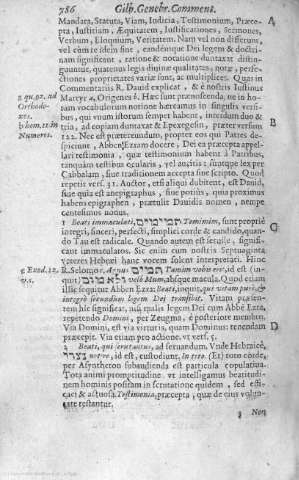 786 Gilb. Genebr. Comment.
Mandata, Statuta, Viam, Iudicia, Testimonium, Præce-
pta, Iustitiam, Æquitatem, Iustificationes, Sermones,
Verbum, Eloquium, Veritatem. Nam vel non differunt,
vel cùm re idem sint, eandémque Dei legem & doctri-
nam significent, ratione & notatione duntaxat distin-
guuntur, quatenus legis diuinæ qualitates, notæ, perfe-
ctiones proprietates variæ sunt, ac multiplices. Quat in
Commentariis R. Dauid explicat, & è nostris Iustinus
a qu. 92. ad Martyr a, Origenes b. Hæc sunt prænoscenda, ne in ho-
Orthodo- rum vocabulorum notione hæreamus in singulis versi-
xos. bus, qui vnum istorum semper habent, interdum duo &
b hom. 11. in tria, ad copiam duntaxat & Epexegesin, præter versum B
Numeros. 122. Nec est prætereundum, propter eos qui Patres de-
spiciunt, Abben Ezram docere, Dei ea præcepta appel-
lari testimonia, quæ testimonium habent à Patribus,
tanquam testibus ocularis, vel auritis: quatque lex per
Cabbalam, siue traditionem accepta sine scripto. Quod
repetit vers. 31. Auctor, etsi aliqui dubitent, est Dauid,
siue quia est anepigraphus, siue potius, quia proximus
habens epigraphen, prætulit Dauidis nomen, nempe
centesimus nonus.
1 Beati immaculati, תמימים Temimim, sunt propriè C
integri, sinceri, perfecti, simplici corde & candido, quan-
do Tau est radicale. Quando autem est seruile, signifi-
cant immaculatos. Sic enim cum nostris Septuaginta
veteres Hebræi hanc vocem solent interpretari. Hinc
c Exod. 12. R. Selomo c, Agnus תמים Tamim vobis erit, id est (in-
v. 5. quit) בלא מום velò Mum, absque macula. Quod etiam
illic sequitur Abben Ezra: Beati, inquit, qui vitam puram &
integrè secundum legem Dei transibit. Vitam præsen-
tem hîc significat, nisi malis legem Dei cum Abbē Ezra,
repetendo Domini, per Zeugma, è posteriore membro.
Via Domini, est via virtutis, quam Dominus tenendam D
præcepit. Via etiam pro actione. vt vers. 5.
2 Beati, qui scrutantur, ad seruandum. Vnde Hebraicè,
נצרי notre, id est, custodiunt. In toto. (Et) toto corde,
per Asyntheton subaudienda est particula copulatiua.
Tota animi promptitudine. vt intelligamus beatitudi-
nem hominis positam in scrutatione quidem, sed effi-
caci & actuosa. Testimonia, præcepta, quæ de eius volun-
tate testantur.
3 Non